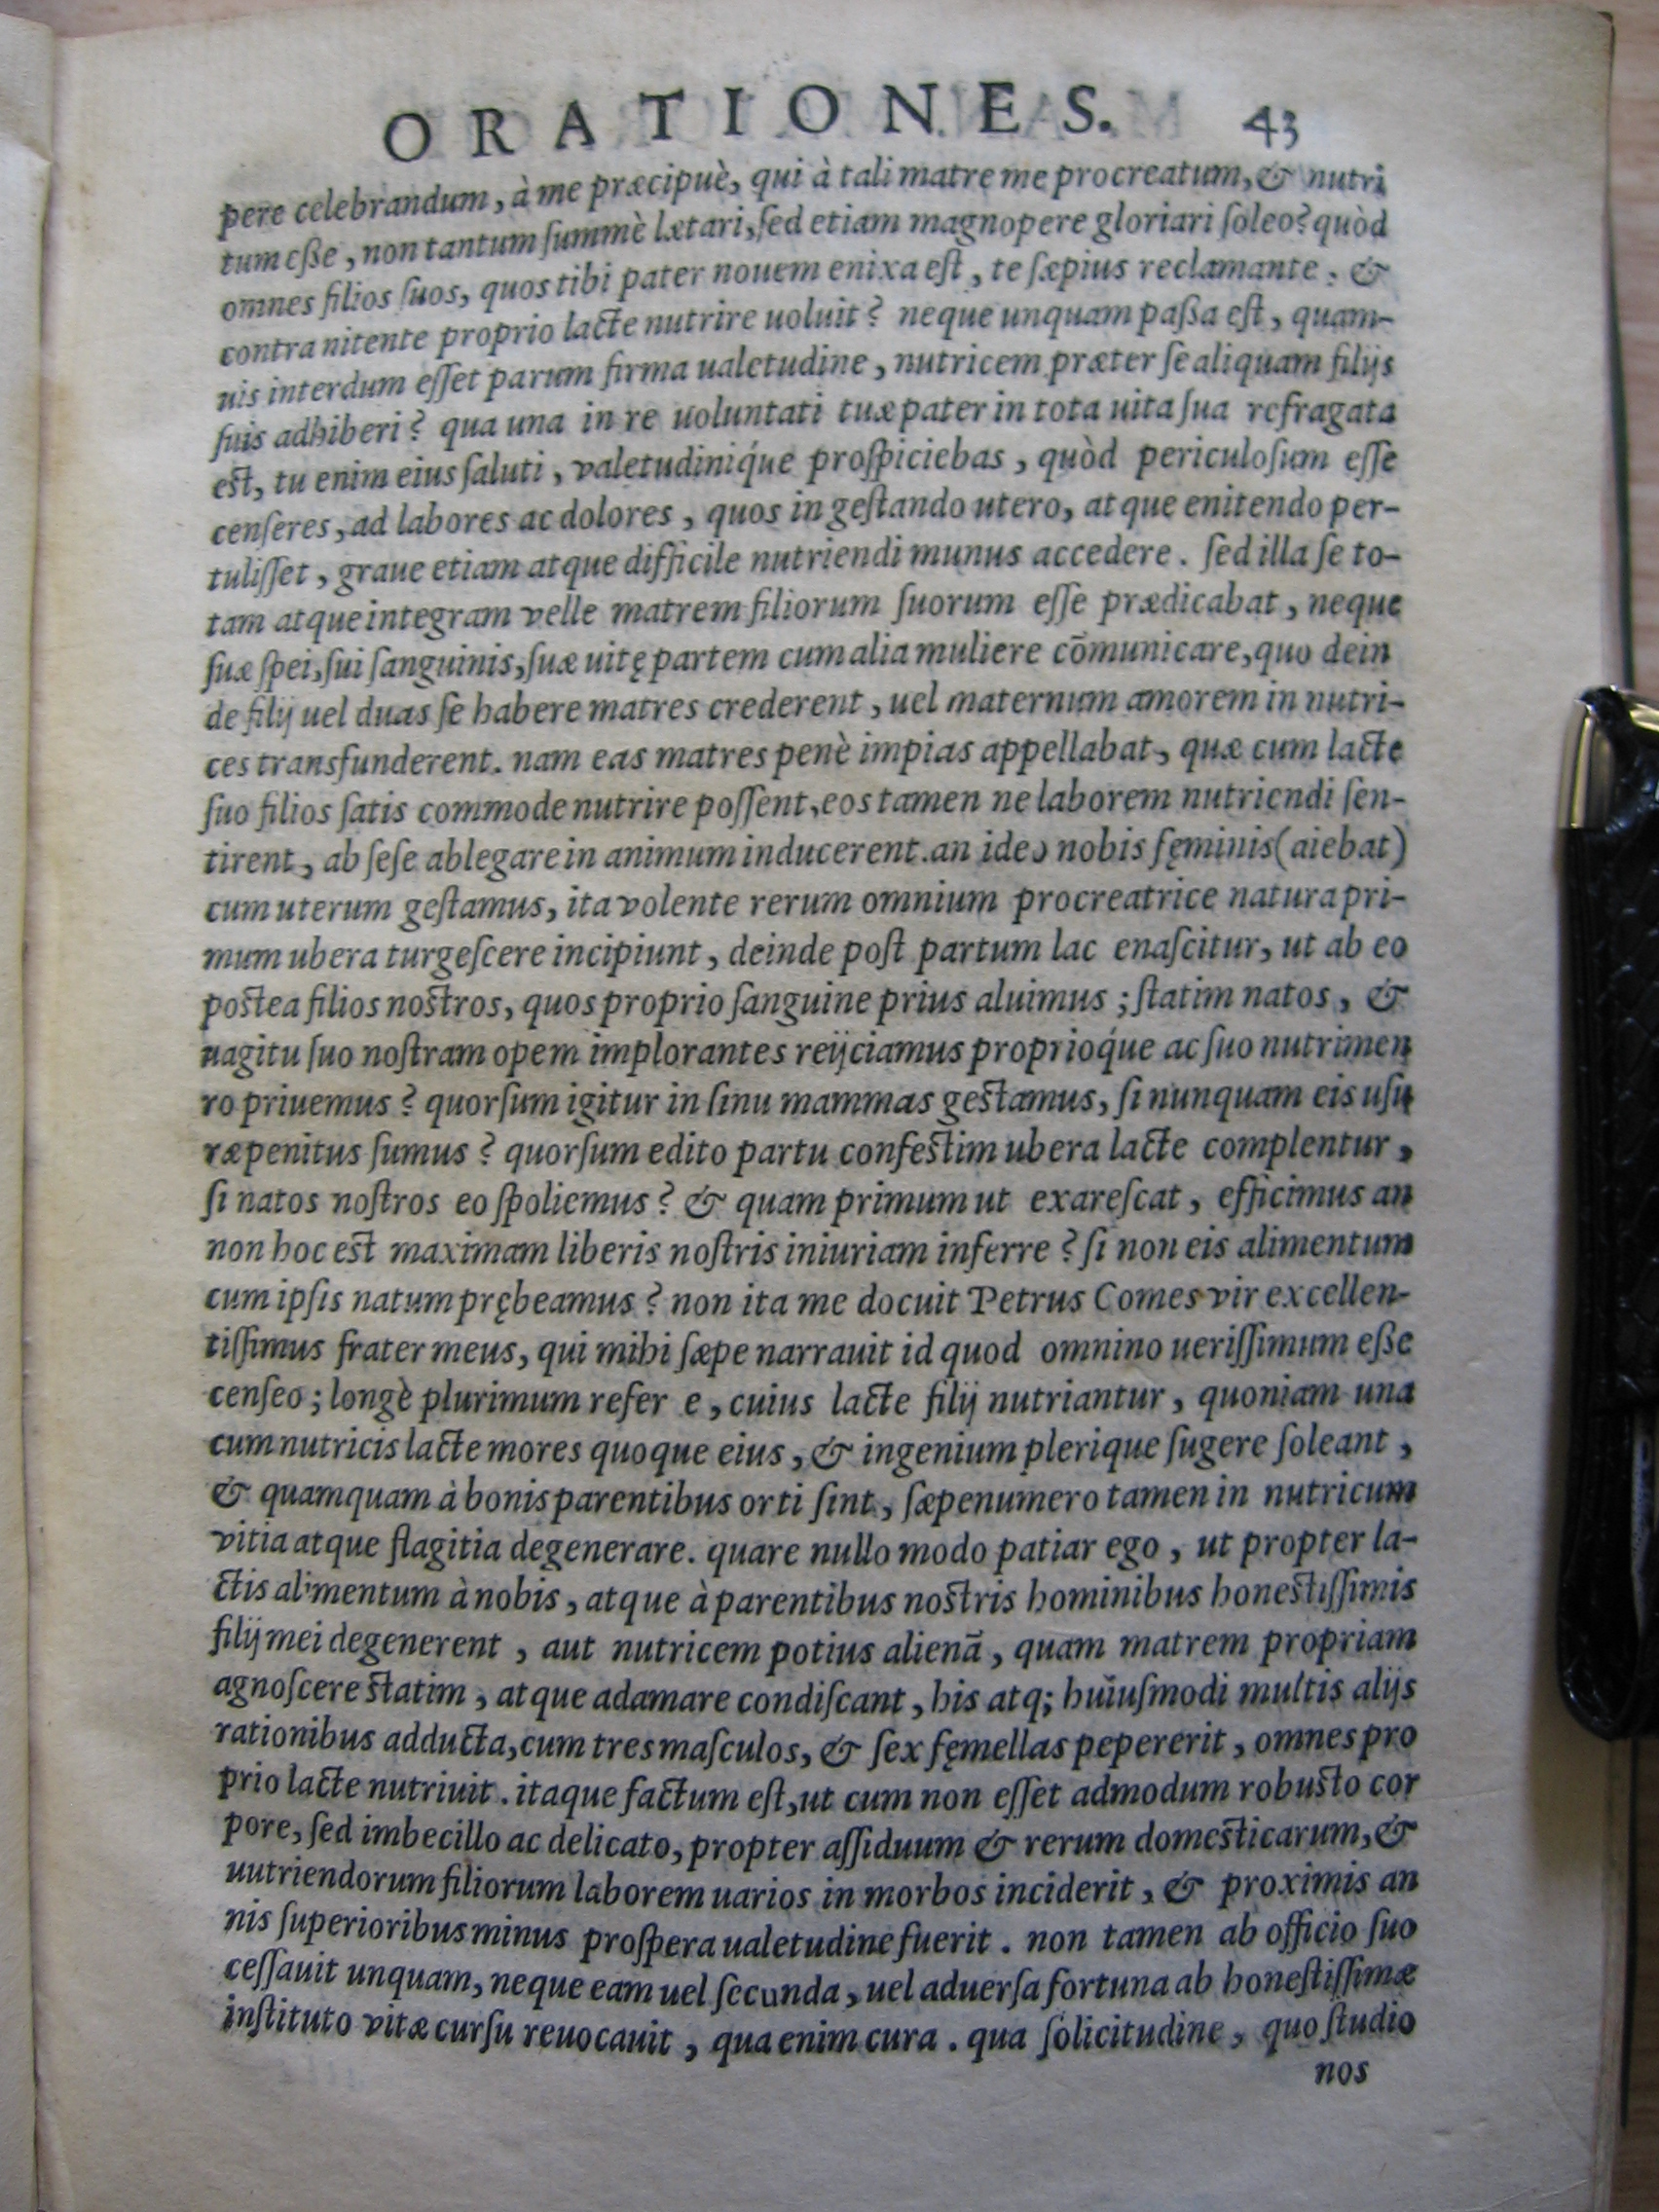 ORATIONES. 43
pere celebrandum, à me præcipuè, qui à tali matre me procreatum, & nutri
tum eße, non tantum summè lætari, sed etiam magnopere gloriari soleo? quòd
omnes filios suos, quos tibi pater nouem enixa est, te sæpius reclamante. &
contra nitente proprio lacte nutrire uoluit? neque unquam paßa est, quam-
uis interdum esset parum firma ualetudine, nutricem præter se aliquam filijs
suis adhiberi? qua una in re uoluntati tuæ pater in tota uita sua refragata
est, tu enim eius saluti, valetudiniq́ue prospiciebas, quòd periculosum esse
censeres, ad labores ac dolores, quos in gestando utero, atque enitendo per-
tulisset, graue etiam atque difficile nutriendi munus accedere. sed illa se to-
tam atque integram velle matrem filiorum suorum esse prædicabat, neque
suæ spei, sui sanguinis, suæ uitę partem cum alia muliere cōmunicare, quo dein
de filij uel duas se habere matres crederent, uel maternum amorem in nutri-
ces transfunderent. nam eas matres penè impias appellabat, quæ cum lacte
suo filios satis commode nutrire possent, eos tamen ne laborem nutriendi sen-
tirent, ab sese ablegare in animum inducerent. an ideo nobis fęminis (aiebat)
cum uterum gestamus, ita volente rerum omnium procreatrice natura pri-
mum ubera turgescere incipiunt, deinde post partum lac enascitur, ut ab eo
postea filios nostros, quos proprio sanguine prius aluimus; statim natos, &
uagitu suo nostram opem implorantes reijciamus proprioq́ue ac suo nutrimen
ro priuemus? quorsum igitur in sinu mammas gestamus, si nunquam eis usu
ræ penitus sumus? quorsum edito partu confestim ubera lacte complentur,
si natos nostros eo spoliemus? & quam primum ut exarescat, efficimus an
non hoc est maximam liberis nostris iniuriam inferre? si non eis alimentum
cum ipsis natum prębeamus? non ita me docuit Petrus Comes vir excellen-
tissimus frater meus, qui mihi sæpe narrauit id quod omnino uerissimum eße
censeo; longè plurimum refer e, cuius lacte filij nutriantur, quoniam una
cum nutricis lacte mores quoque eius, & ingenium plerique sugere soleant,
& quamquam à bonis parentibus orti sint, sæpenumero tamen in nutricum
vitia atque flagitia degenerare. quare nullo modo patiar ego, ut propter la-
ctis alimentum à nobis, atque à parentibus nostris hominibus honestissimis
filij mei degenerent, aut nutricem potius alienā, quam matrem propriam
agnoscere statim, atque adamare condiscant, his atq; huiusmodi multis alijs
rationibus adducta, cum tres masculos, & sex fęmellas pepererit, omnes pro
prio lacte nutriuit. itaque factum est, ut cum non esset admodum robusto cor
pore, sed imbecillo ac delicato, propter assiduum & rerum domesticarum, &
uutriendorum filiorum laborem uarios in morbos inciderit, & proximis an
nis superioribus minus prospera ualetudine fuerit. non tamen ab officio suo
cessauit unquam, neque eam uel secunda, uel aduersa fortuna ab honestissimæ
instituto vitæ cursu reuocauit, qua enim cura. qua solicitudine, quo studio
nos